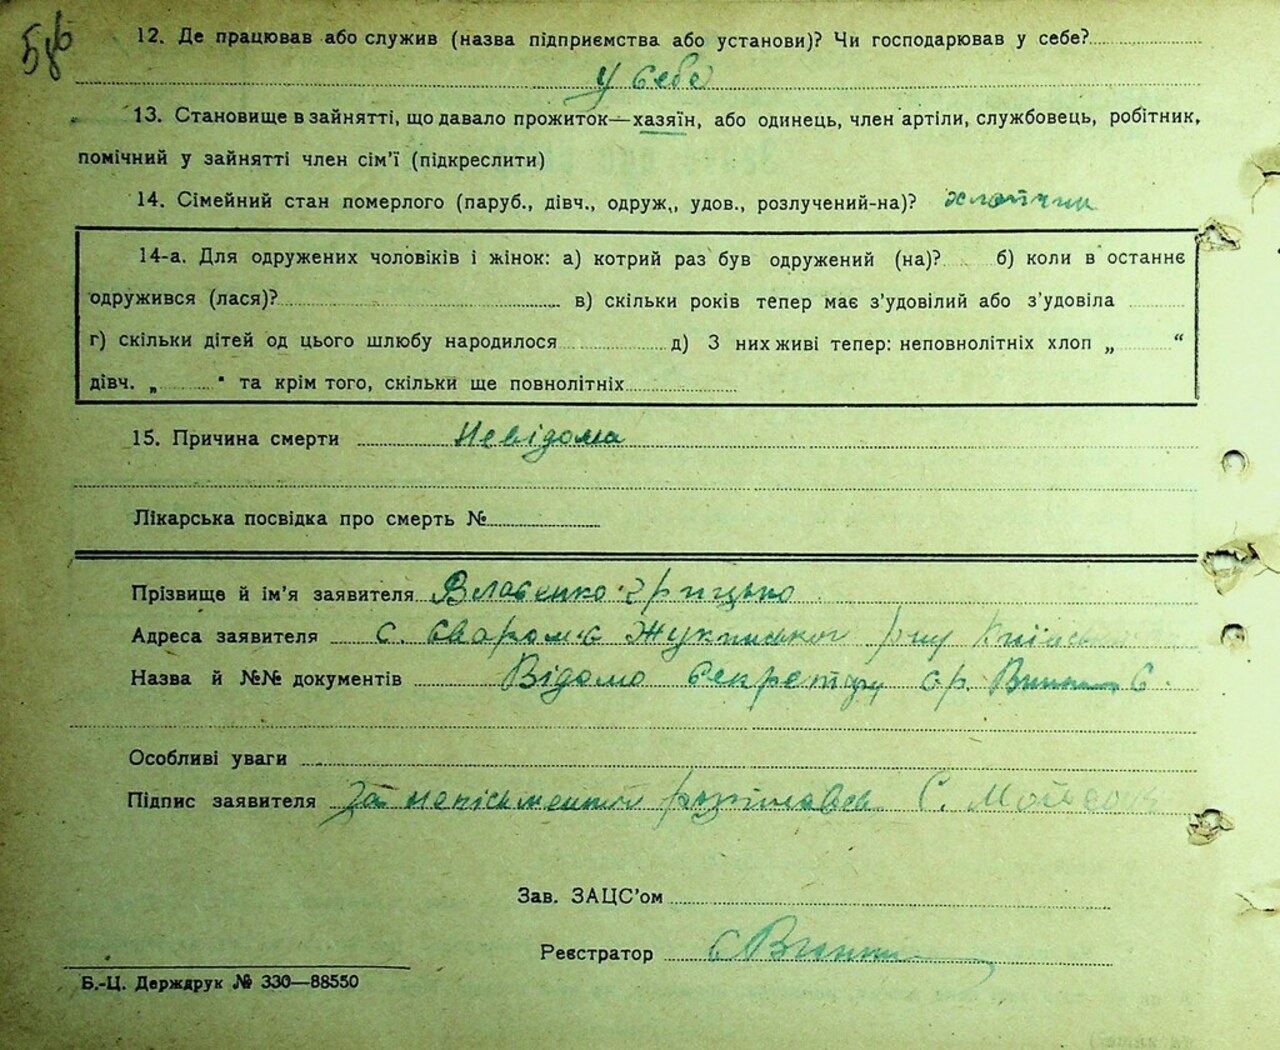 12. Де працював або служив (назва підприємства або установи)? Чи господарював у себе?
у себе
13. Становище в зайнятті, що давало прожиток—хазяїн, або одинець, член артіли, службовець, робітник,
помічний у зайнятті член сім'ї (підкреслити)
14. Сімейний стан померлого (паруб., дівч., одруж,, удов., розлучений-на)? хлопчик
14-а. Для одружених чоловіків і жінок: а) котрий раз був одружений (на)? б) коли в останнє
одружився (лася)? в) скільки років тепер має з'удовілий або з'удовіла
г) скільки дітей од цього шлюбу народилося д) З них живі тепер: неповнолітніх хлоп „ “
дівч. „ " та крім того, скільки ще повнолітніх
15. Причина смерти Невідома
Лікарська посвідка про смерть №
Прізвище й ім'я заявителя Власенко Грицько
Адреса заявителя с. Сваром'є Жукинського р-ну
Назва й №№ документів Відомо секретару с/р.
Особливі уваги
Підпис заявителя За неписьменного розписався С.
Зав. ЗАЦС'ом
Реєстратор
Б.-Ц. Держдрук № 330—88550